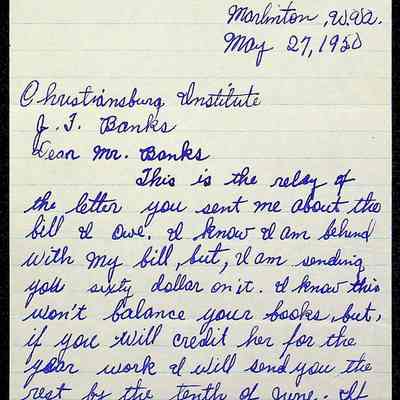 Marlinton, W.Va.
May 27, 1950
Christiansburg Institute
J. T. Banks
Dear Mr. Banks
This is the relay of
the letter you sent me about the
bill I owe. I know I am behind
with my bill, but, I am sending
you sixty dollar on it. I know this
won't balance your books, but,
if you will credit her for the
year work I will send you the
rest by the tenth of June. If